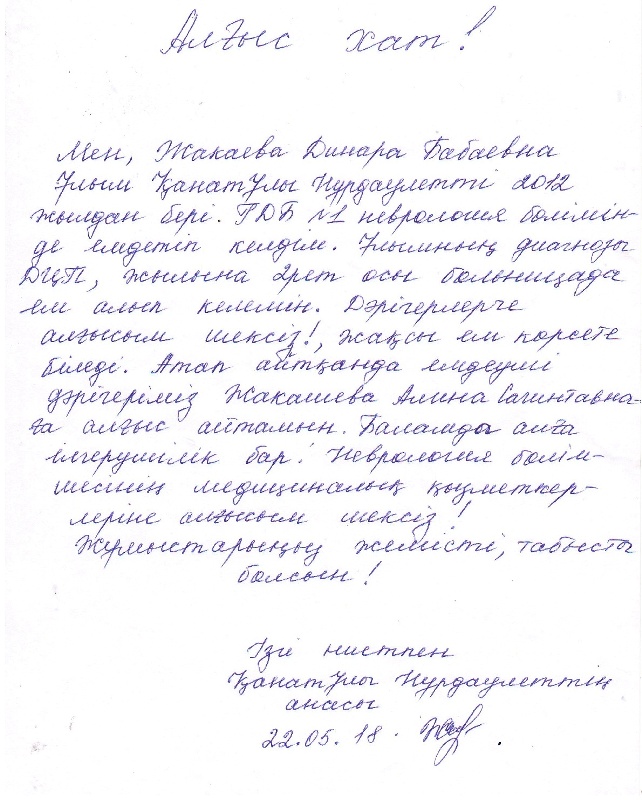 Алғыс хат!
Мен, Жакаева Динара Бабаевна
Ұлым Қанатұлы Нұрдәулетті 2012
жылдан бері. ГДБ №1 неврология бөлімін-
де емдетіп келдім. Ұлымның диагнозы
ДЦП, жылына 2рет осы больницада
ем алып келемін. Дәрігерлерге
алғысым шексіз!, жақсы ем көрсете
біледі. Атап айтқанда емдеуші
дәрігеріміз Жакашева Алина Сагинтавна-
ға алғыс айтамын. Баламда алға
ілгерушілік бар! Неврология бөлім-
шесінің медициналық қызметкер-
леріне алғысым шексіз!
Жұмыстарыңыз жемісті, табысты
болсын!
Ізгі ниетпен
Қанатұлы Нұрдәулеттің
анасы
22.05.18.